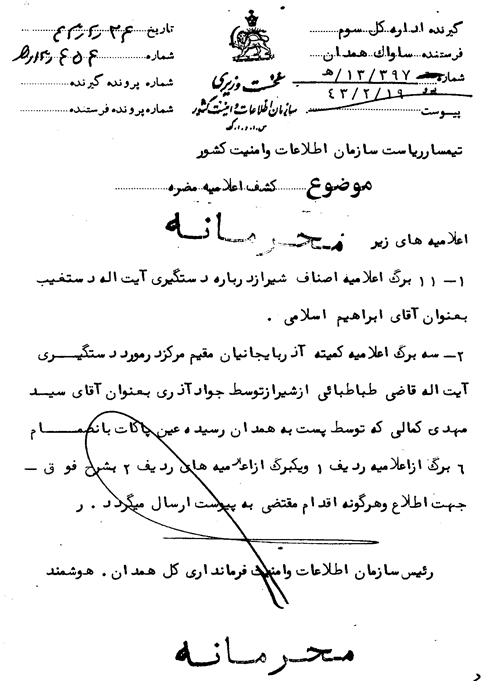 گیرنده اداره کل سوم
فرستنده ساواك همدان
شماره ۱۳/۳۹۷/ه
۴۳/۲/۱۹
پیوست
نخست وزیری
سازمان اطلاعات و امنیت کشور
س.ا.و.ا.ك
تاریخ
شماره
شماره پرونده گیرنده
شماره پرونده فرستنده
تیمسار ریاست سازمان اطلاعات وامنیت کشور
موضوع کشف اعلامیه مضره
محرمانه
اعلامیه های زیر
۱- ۱۱ برگ اعلامیه اصناف شیراز درباره دستگیری آیت اله دستغیب
بعنوان آقای ابراهیم اسلامی .
۲- سه برگ اعلامیه کمیته آذربایجانیان مقیم مرکز درمورد دستگیری
آیت اله قاضی طباطبائی ازشیراز توسط جواد آذری بعنوان آقای سید
مهدی کمالی که توسط پست به همدان رسیده عین پاکات بانضمام
۶ برگ ازاعلامیه ردیف ۱ ویکبرگ ازاعلامیه های ردیف ۲ بشرح فوق -
جهت اطلاع وهرگونه اقدام مقتضی به پیوست ارسال میگردد . ر
رئیس سازمان اطلاعات وامنیت فرمانداری کل همدان . هوشمند
محرمانه